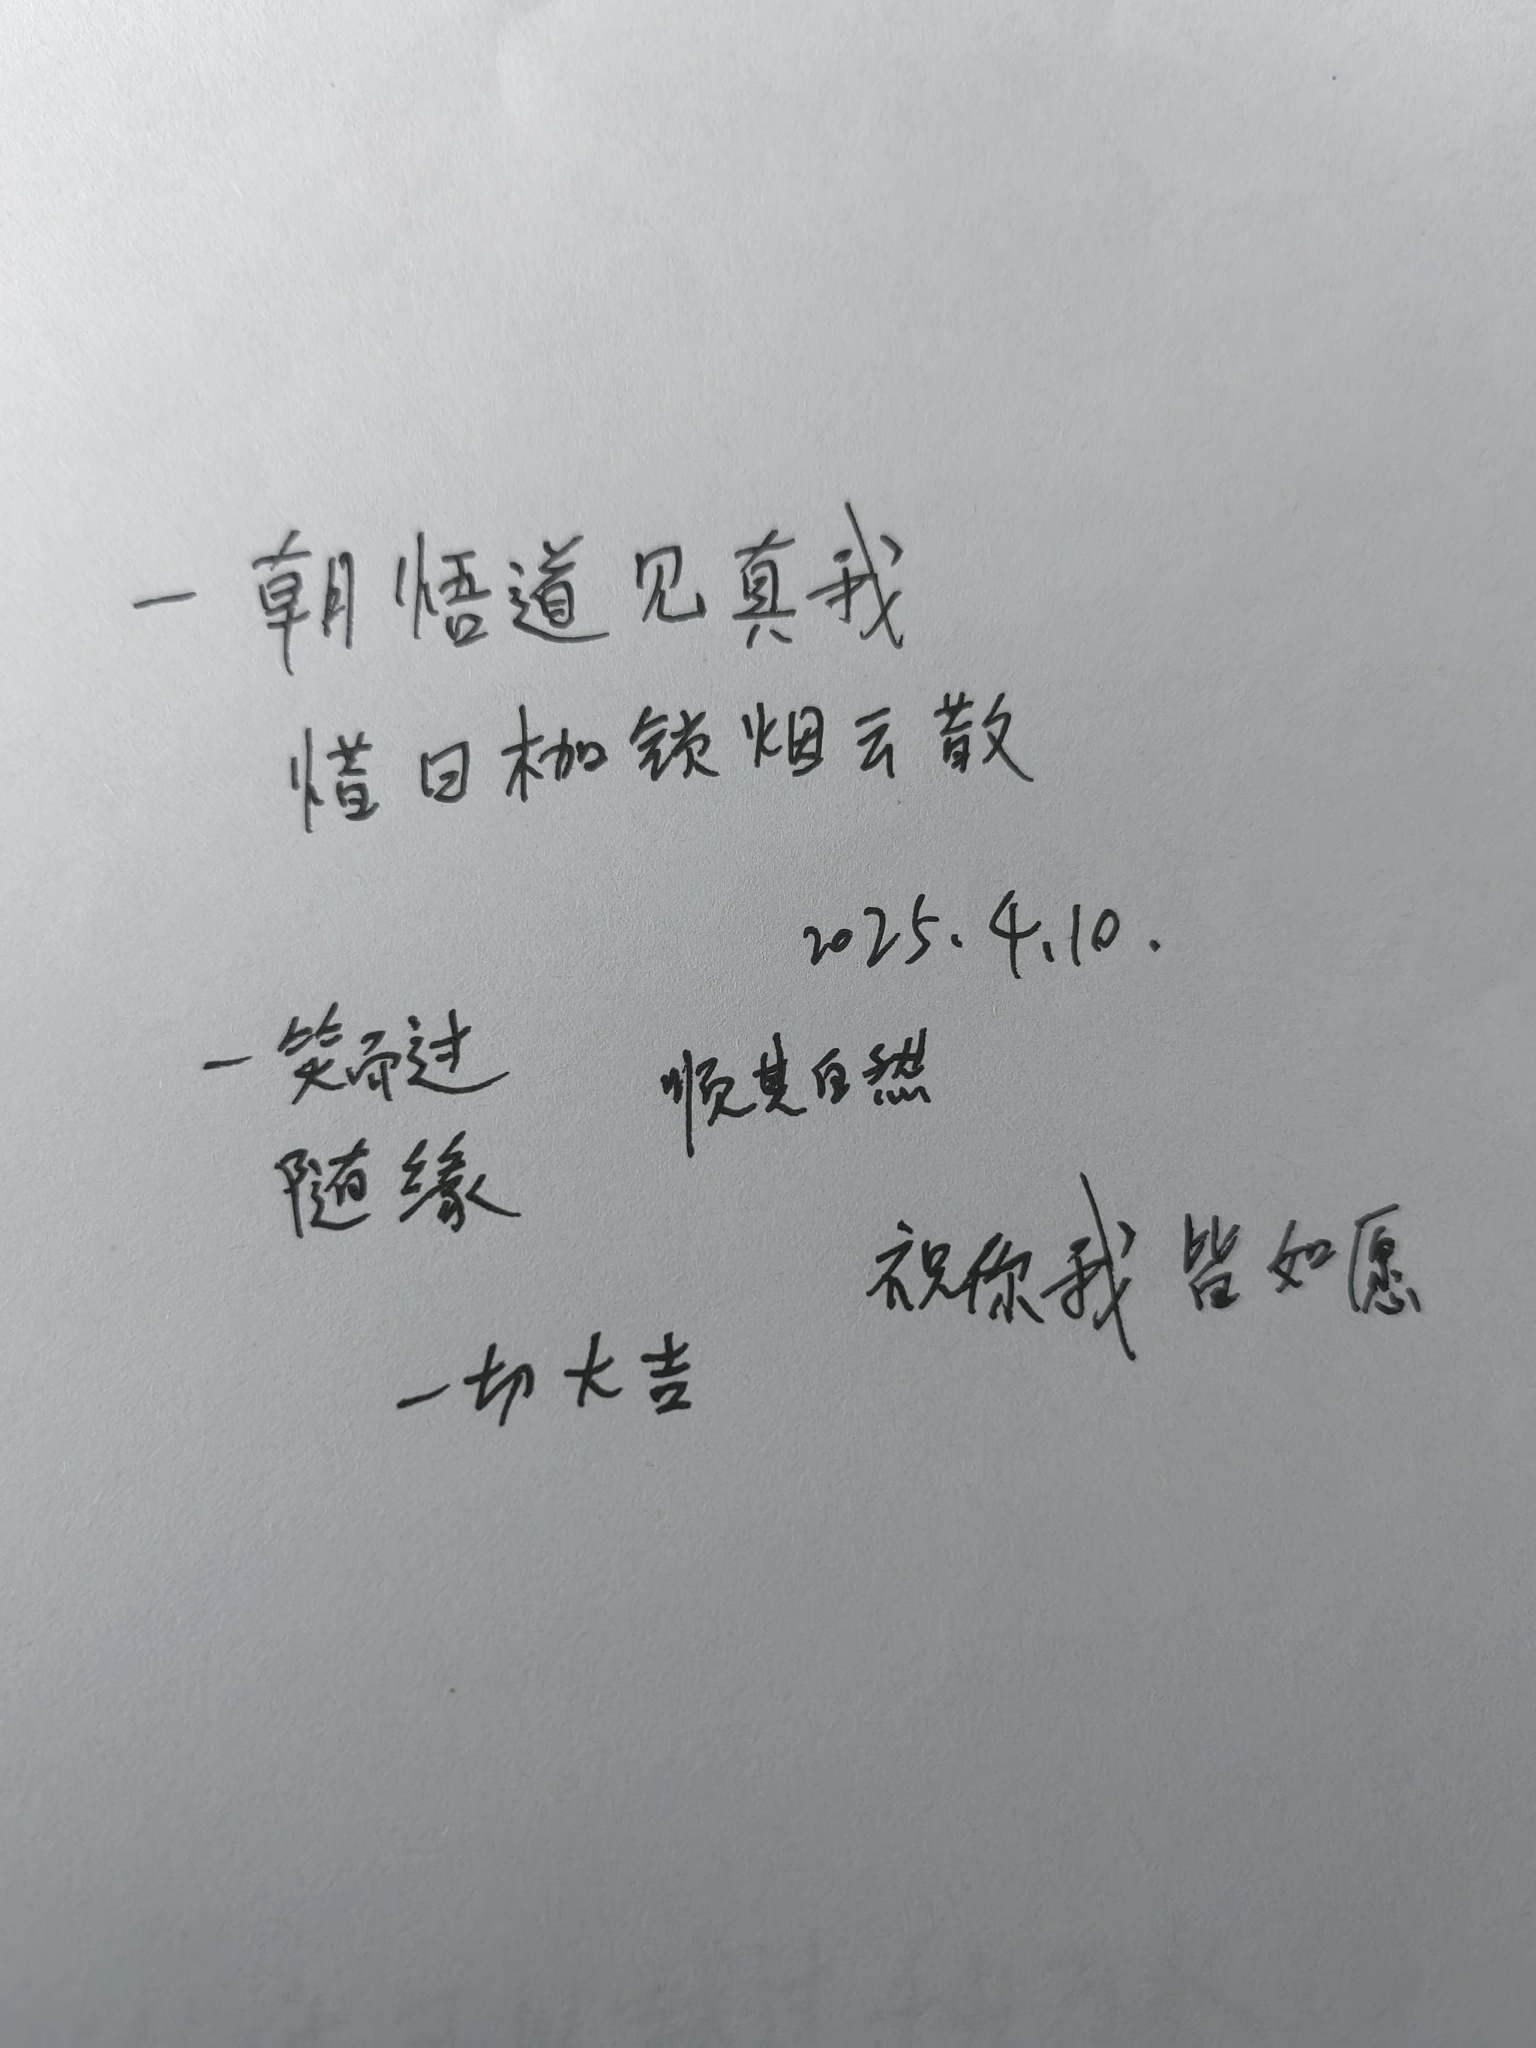 一朝悟道见真我
惜日枷锁烟云散
2025.4.10.
一笑而过 顺其自然
随缘
祝你我皆如愿
一切大吉